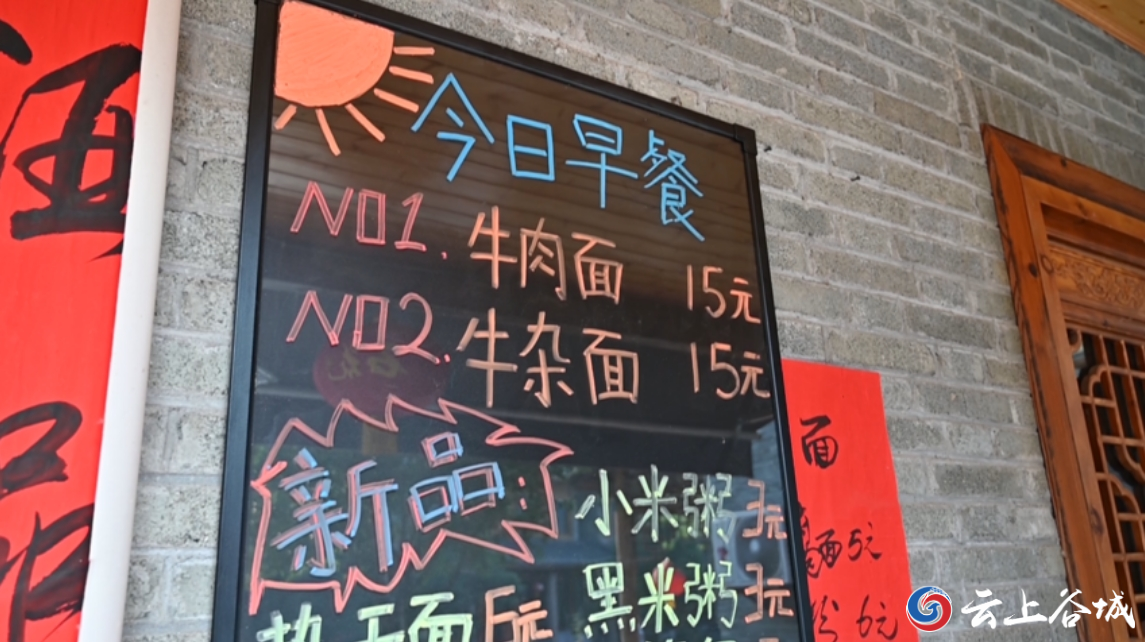 今日早餐
NO1. 牛肉面 15元
NO2. 牛杂面 15元
新品:
小米粥 3元
黑米粥 3元
热干面 5元
面
面5元
6元
云上谷城